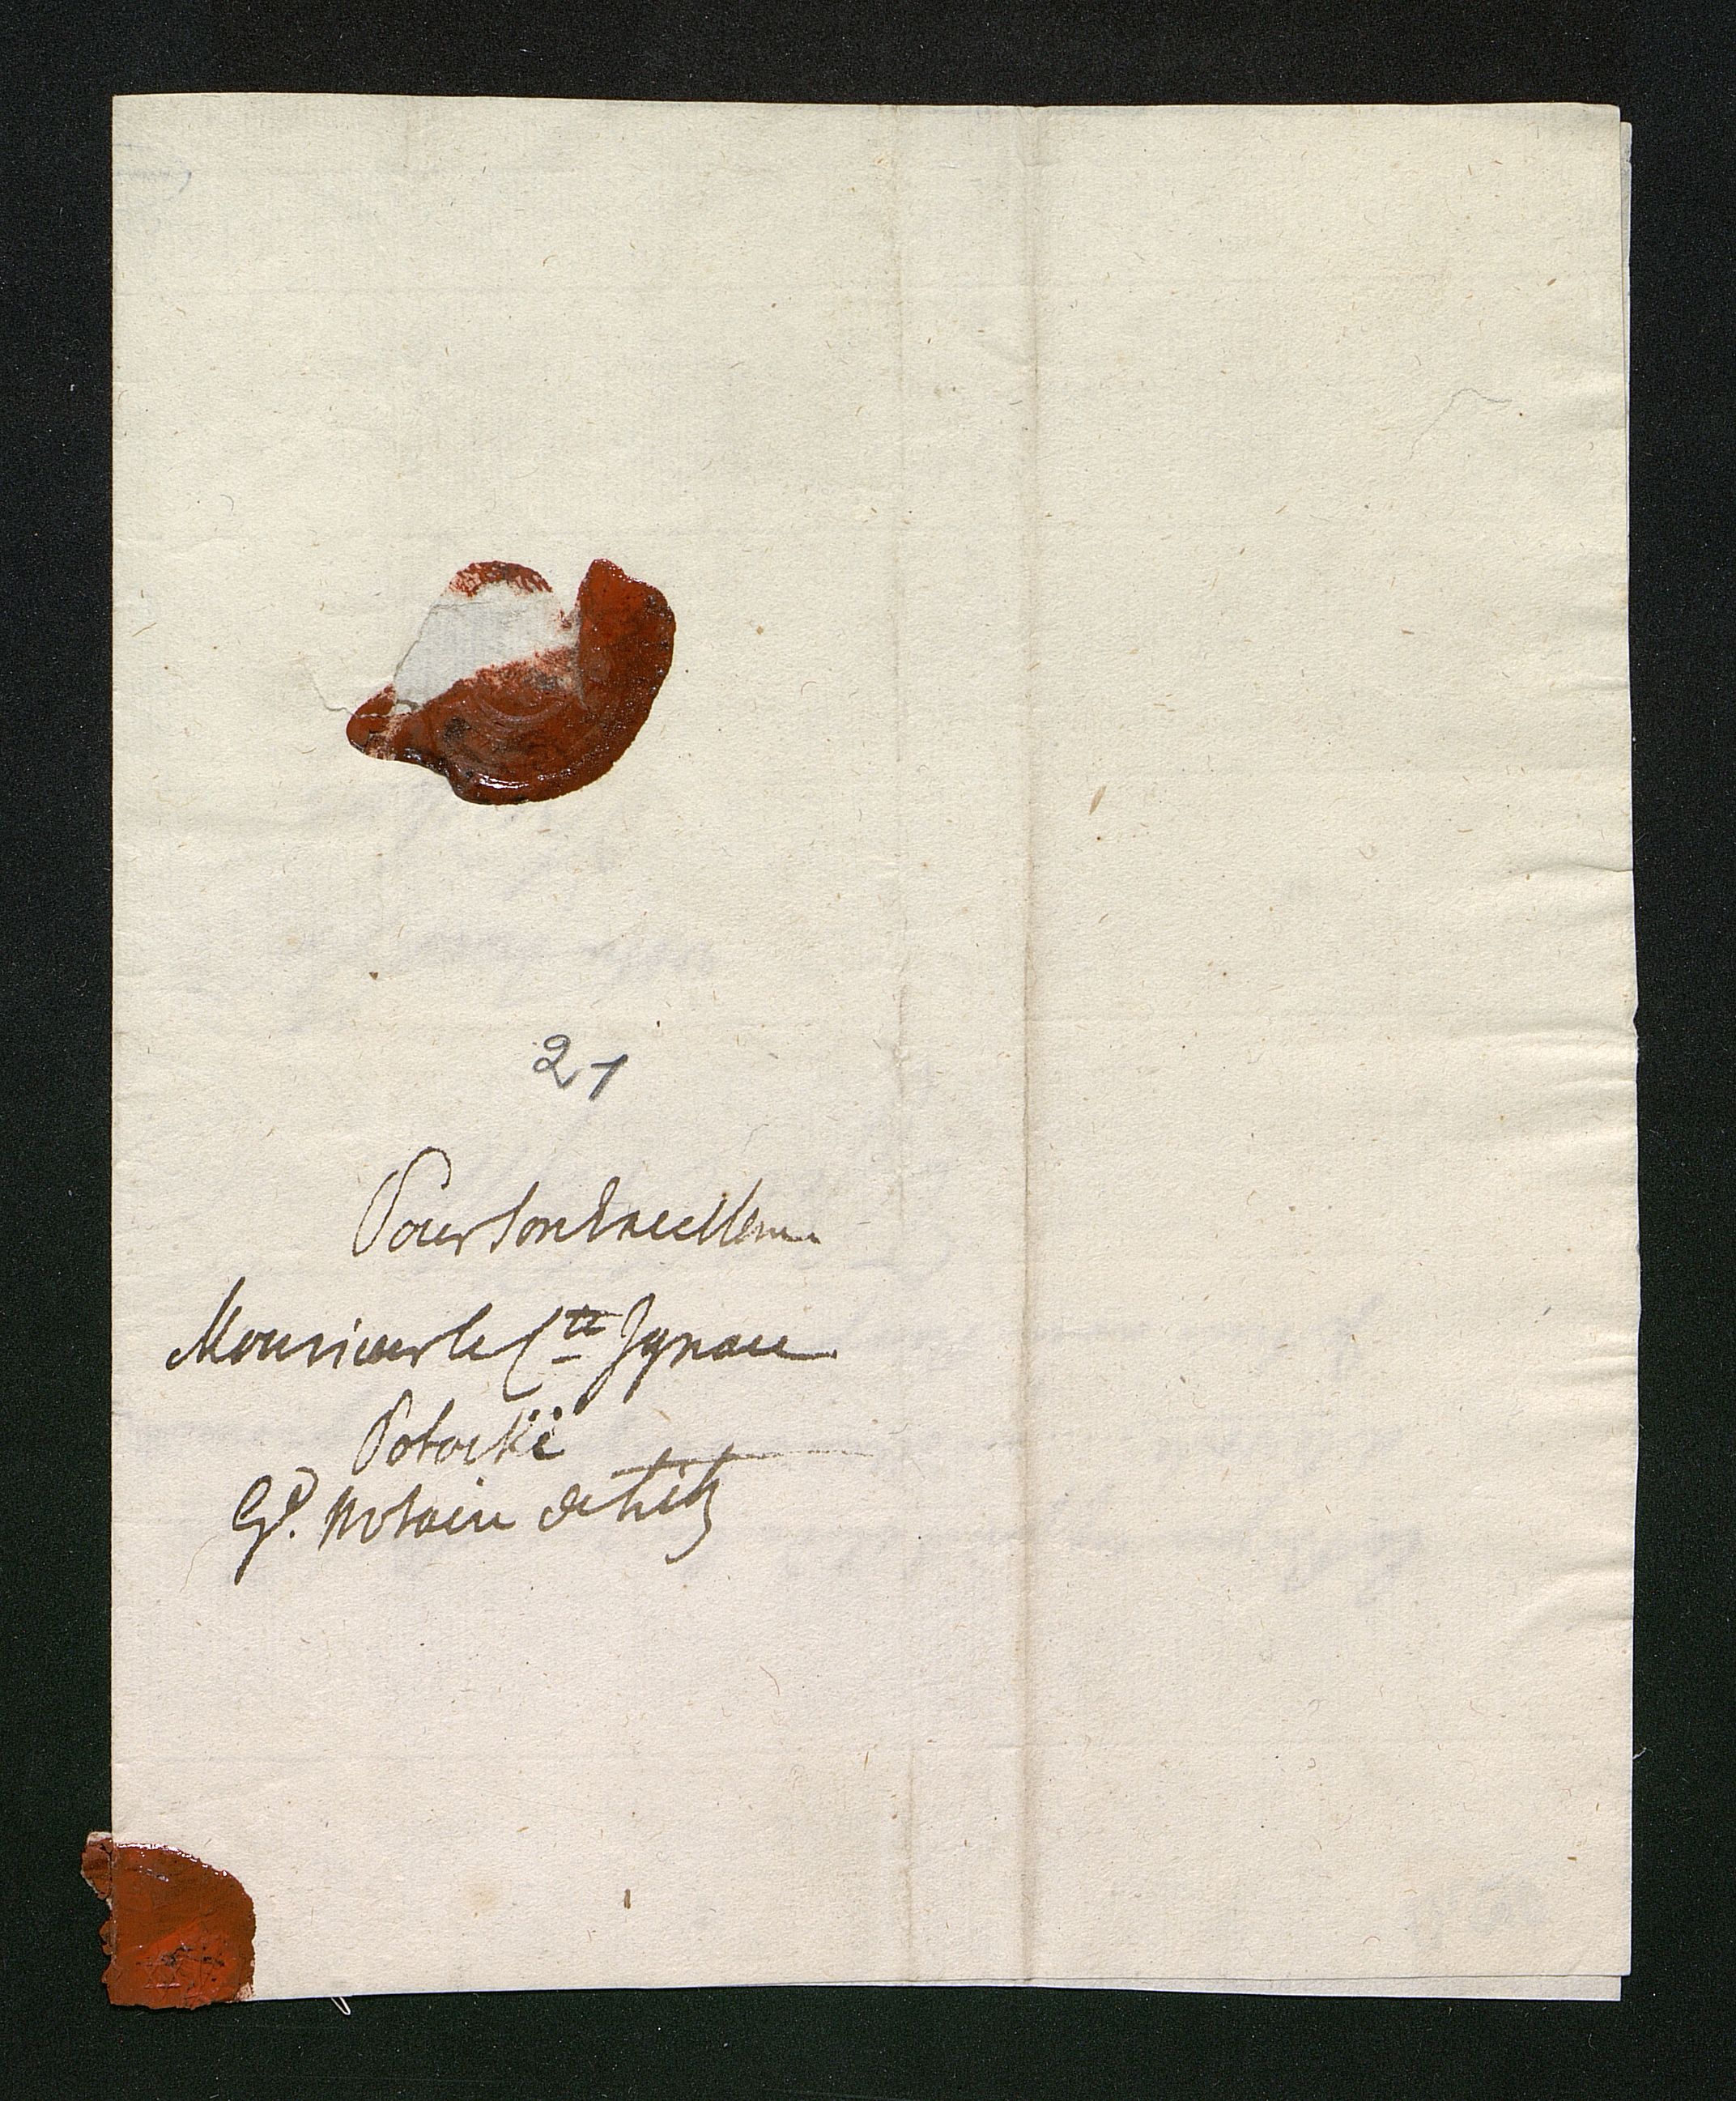 21
Pour Son Excellence
Monsieur le Cte Ignace
Potocki
Gd. Notaire de Lith